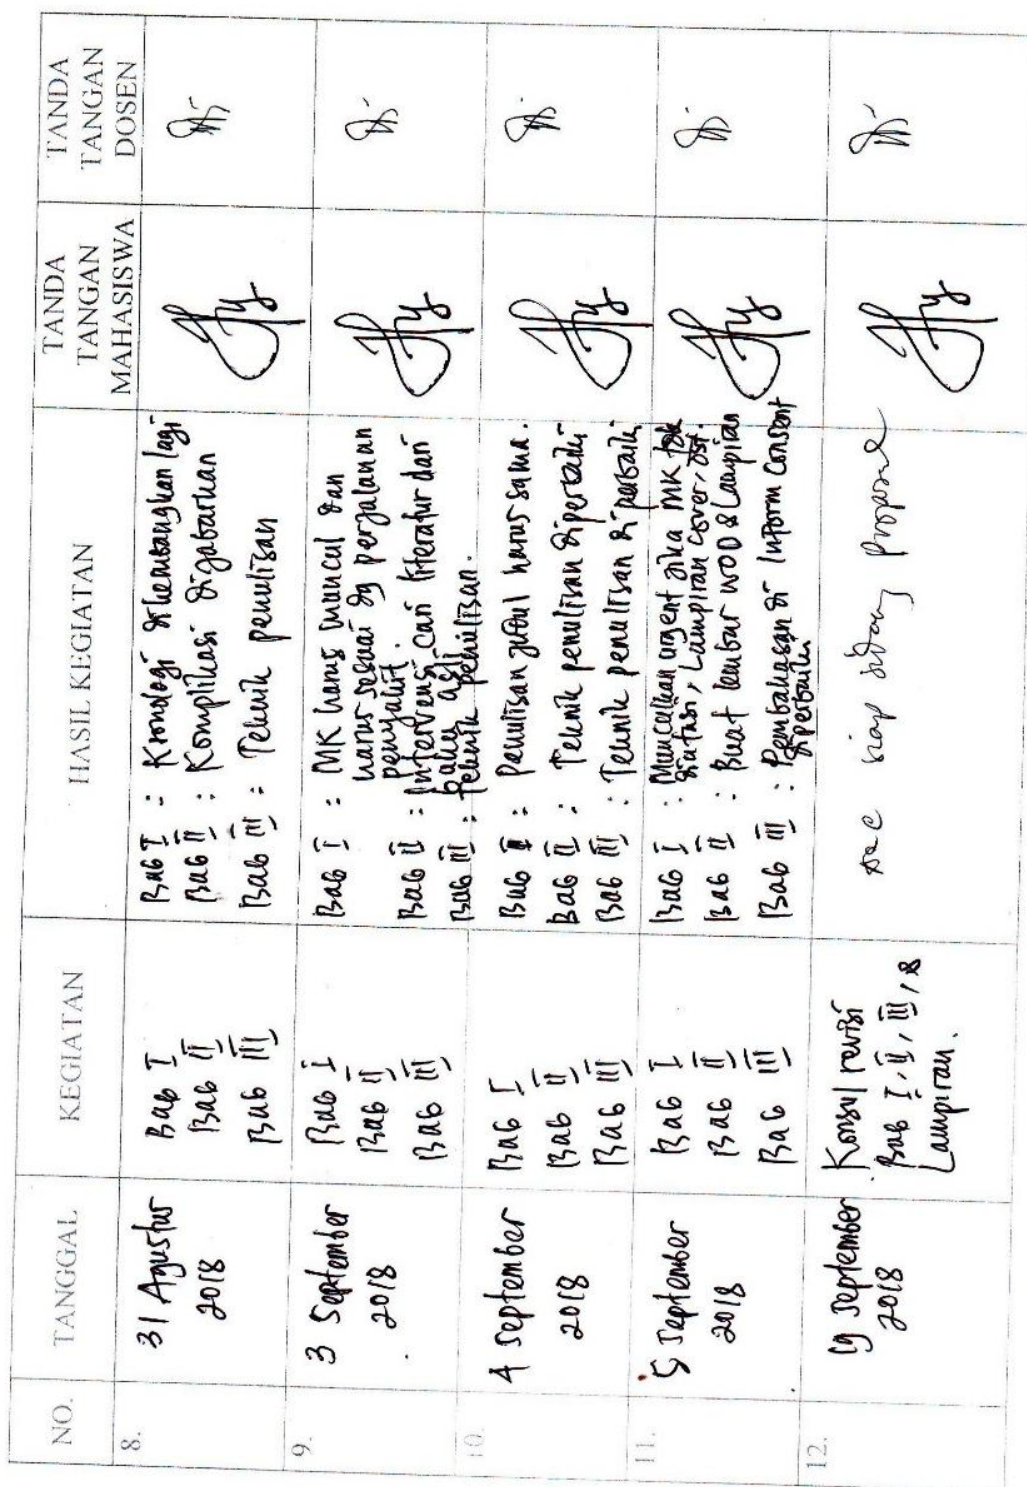 NO.
TANGGAL
KEGIATAN
HASIL KEGIATAN
TANDA
TANGAN
MAHASISWA
TANDA
TANGAN
DOSEN
8.
31 Agustus
2018
Bab I
Bab II
Bab III
Bab I : Kronologi dikembangkan lagi
Bab II : Komplikasi digabarkan
Bab III : Teknik penulisan
9.
3 September
2018
Bab I
Bab II
Bab III
Bab I : MK harus muncul dan
harus sesuai dg perjalanan
penyakit.
Bab II : Intervensi cari literatur dari
buku asli
Bab III : Teknik penulisan.
10.
4 September
2018
Bab I
Bab II
Bab III
Bab I : Penulisan judul harus sama.
Bab II : Teknik penulisan diperbaiki
Bab III : Teknik penulisan diperbaiki
11.
5 September
2018
Bab I
Bab II
Bab III
Bab I : Munculkan urgent jika MK tdk
diatasi, Lampiran cover,
Bab II : Buat lembar WOD & Lampiran
Bab III : Pembahasan di Inform Consent
diperbaiki
12.
September
2018
Konsul revisi
Bab I, II, III, &
Lampiran.
acc siap sidang proposal